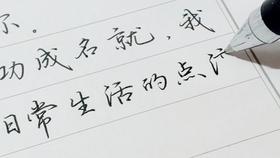 尔。
功成名就，我
日常生活的点